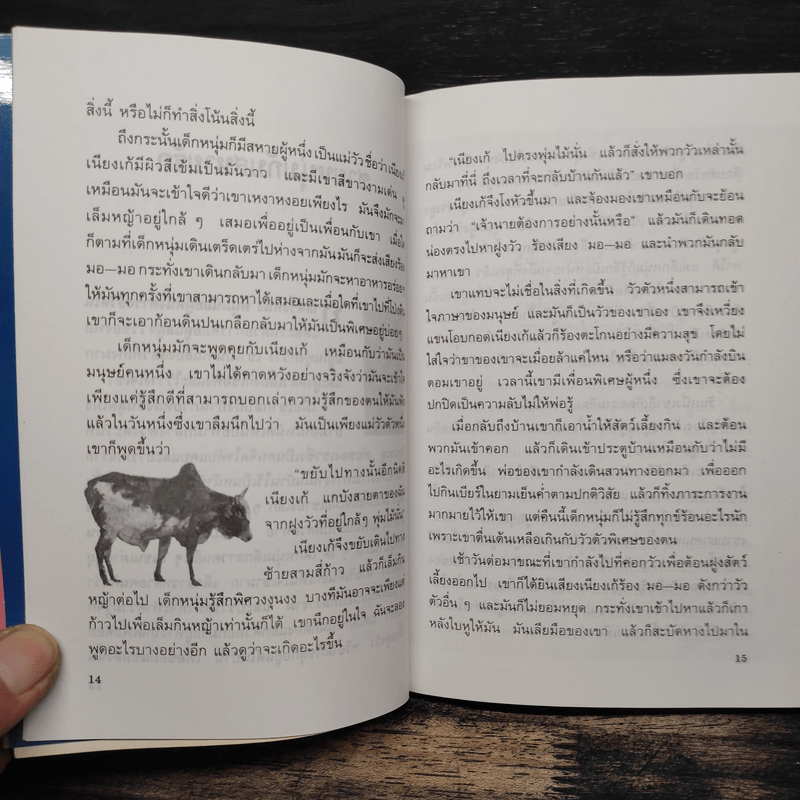 สิ่งนี้ หรือไม่ก็ทำสิ่งโน้นสิ่งนี้
ถึงกระนั้นเด็กหนุ่มก็มีสหายผู้หนึ่ง เป็นแม่วัวชื่อว่าเนียงเก้
เนียงเก้มีผิวสีเข้มเป็นมันวาว และมีเขาสีขาวงามเด่น
เหมือนมันจะเข้าใจดีว่าเขาเหงาหงอยเพียงไร มันจึงมักจะมา
เล็มหญ้าอยู่ใกล้ ๆ เสมอเพื่ออยู่เป็นเพื่อนกับเขา
ก็ตามที่เด็กหนุ่มเดินเตร็ดเตร่ไปห่างจากมัน มันก็จะส่งเสียงร้อง
มอ–มอ กระทั่งเขาเดินกลับมา เด็กหนุ่มมักจะหาอาหารอร่อยๆ
ให้มันทุกครั้งที่เขาสามารถหาได้เสมอและเมื่อใดที่เขาไปที่โป่งดิน
เขาก็จะเอาก้อนดินปนเกลือกลับมาให้มันเป็นพิเศษอยู่บ่อยๆ
เด็กหนุ่มมักจะพูดคุยกับเนียงเก้ เหมือนกับว่ามันเป็น
มนุษย์คนหนึ่ง เขาไม่ได้คาดหวังอย่างจริงจังว่ามันจะเข้าใจ
เพียงแค่รู้สึกดีที่สามารถบอกเล่าความรู้สึกของตนให้มันฟัง
แล้วในวันหนึ่งซึ่งเขาลืมนึกไปว่า มันเป็นเพียงแม่วัวตัวหนึ่ง
เขาก็พูดขึ้นว่า
“ขยับไปทางนั้นอีกนิดสิ
เนียงเก้ แกบังสายตาของฉัน
จากฝูงวัวที่อยู่ใกล้ๆ พุ่มไม้นั่น”
เนียงเก้จึงขยับเดินไปทาง
ซ้ายสามสี่ก้าว แล้วก็เล็มกิน
หญ้าต่อไป เด็กหนุ่มรู้สึกพิศวงงุนงง บางทีมันอาจจะเพียงแค่
ก้าวไปเพื่อเล็มกินหญ้าเท่านั้นก็ได้ เขานึกอยู่ในใจ ฉันจะลอง
พูดอะไรบางอย่างอีก แล้วดูว่าจะเกิดอะไรขึ้น
14
“เนียงเก้ ไปตรงพุ่มไม้นั่น แล้วก็สั่งให้พวกวัวเหล่านั้น
กลับมาที่นี่ ถึงเวลาที่จะกลับบ้านกันแล้ว” เขาบอก
เนียงเก้จึงโงหัวขึ้นมา และจ้องมองเขาเหมือนกับจะย้อน
ถามว่า “เจ้านายต้องการอย่างนั้นหรือ” แล้วมันก็เดินทอด
น่องตรงไปหาฝูงวัว ร้องเสียง มอ–มอ และนำพวกมันกลับ
มาหาเขา
เขาแทบจะไม่เชื่อในสิ่งที่เกิดขึ้น วัวตัวหนึ่งสามารถเข้า
ใจภาษาของมนุษย์ และมันก็เป็นวัวของเขาเอง เขาจึงเหวี่ยง
แขนโอบกอดเนียงเก้แล้วก็ร้องตะโกนอย่างมีความสุข โดยไม่
ใส่ใจว่าขาของเขาจะเมื่อยล้าแค่ไหน หรือว่าแมลงวันกำลังบิน
ตอมเขาอยู่ เวลานี้เขามีเพื่อนพิเศษผู้หนึ่ง ซึ่งเขาจะต้อง
ปกปิดเป็นความลับไม่ให้พ่อรู้
เมื่อกลับถึงบ้านเขาก็เอาน้ำให้สัตว์เลี้ยงกิน และต้อน
พวกมันเข้าคอก แล้วก็เดินเข้าประตูบ้านเหมือนกับว่าไม่มี
อะไรเกิดขึ้น พ่อของเขากำลังเดินสวนทางออกมา เพื่อออก
ไปกินเบียร์ในยามเย็นค่ำตามปกติวิสัย แล้วก็ทิ้งภาระการงาน
มากมายไว้ให้เขา แต่คืนนี้เด็กหนุ่มก็ไม่รู้สึกทุกข์ร้อนอะไรนัก
เพราะเขาตื่นเต้นเหลือเกินกับวัวตัวพิเศษของตน
เช้าวันต่อมาขณะที่เขากำลังไปที่คอกวัวเพื่อต้อนฝูงสัตว์
เลี้ยงออกไป เขาก็ได้ยินเสียงเนียงเก้ร้อง มอ–มอ ดังกว่าวัว
ตัวอื่น ๆ และมันก็ไม่ยอมหยุด กระทั่งเขาเข้าไปหาแล้วก็เกา
หลังใบหูให้มัน มันเลียมือของเขา แล้วก็สะบัดหางไปมาใน
15